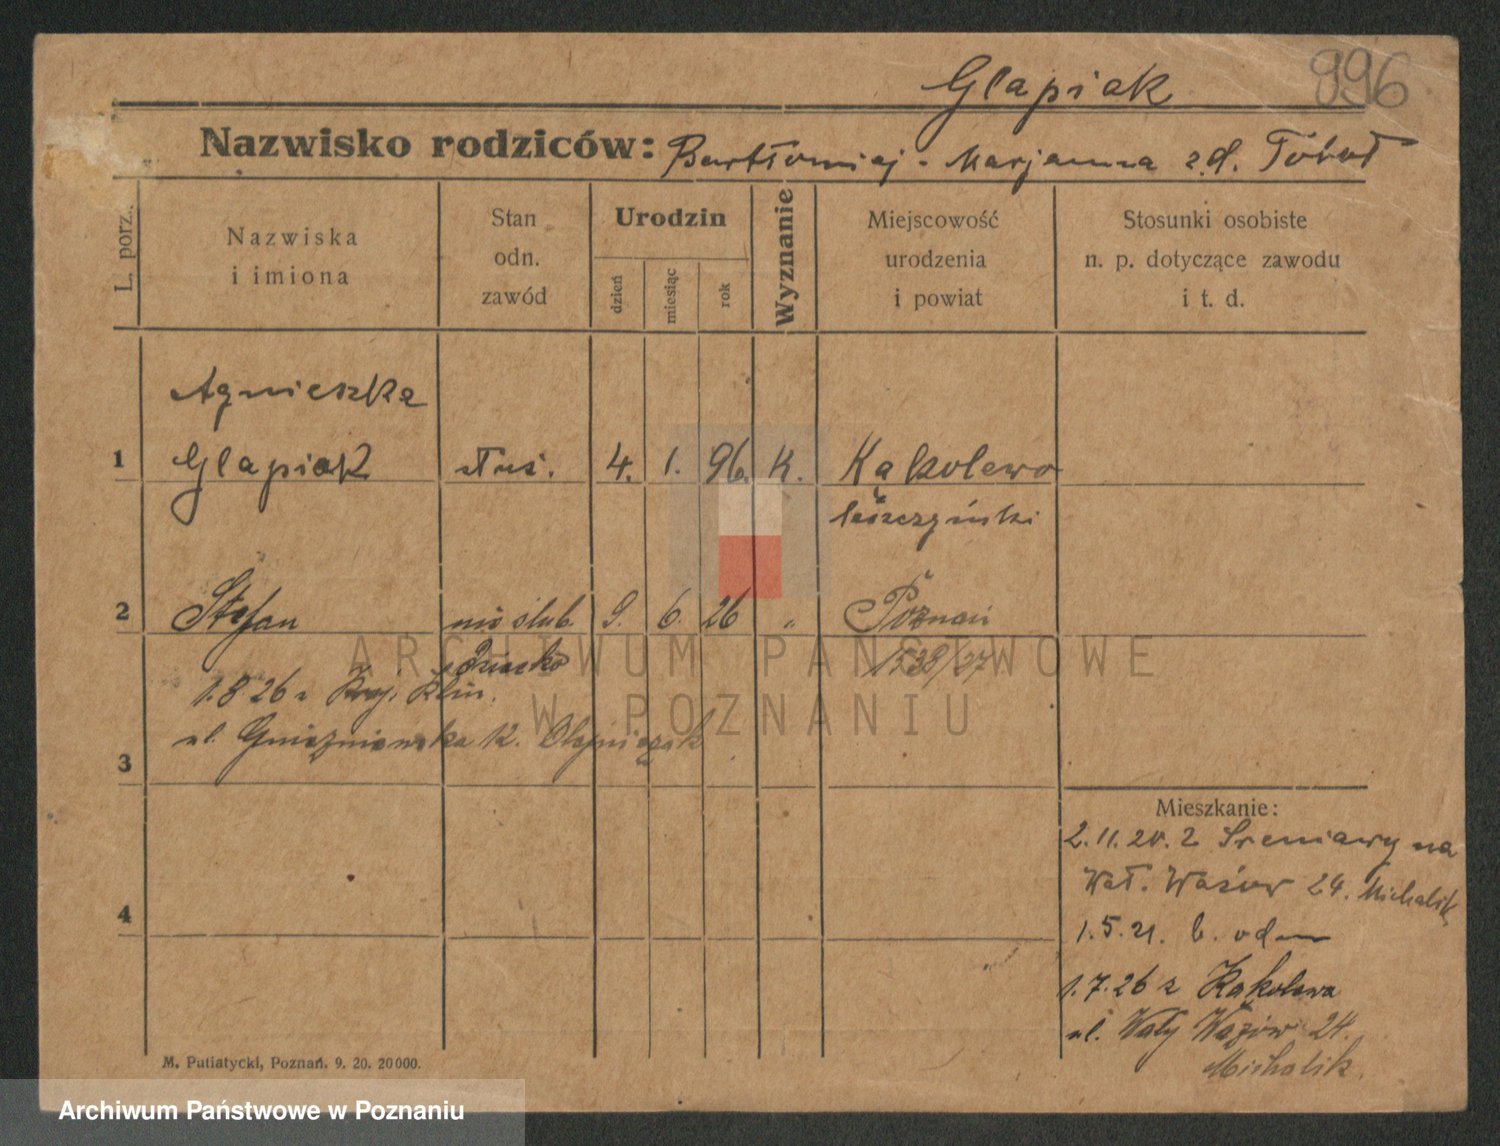 Glapiak 996
Nazwisko rodziców: Bartłomiej - Marjanna z d.
L. porz.
Nazwiska
i imiona
Stan
odn.
zawód
Urodzin
dzień
miesiąc
rok
Wyznanie
Miejscowość
urodzenia
i powiat
Stosunki osobiste
n. p. dotyczące zawodu
i t. d.
Agnieszka
1 Glapiak służ. 4. 1. 96. K. Kąkolewo
leszczyński
2 Stefan nieślub. 9. 6. 26 " Poznań
dziecko 1538/27
1.8 26 z
ul. Gnieźnieńska 12.
3
Mieszkanie:
2.11.20. z Sreniawy na
Wał. Wazów 24. Michalik
4
1.5.21. b. odm
1.7.26 z Kąkolewa
ul. Wały Wazów 24.
Michalik.
M. Putiatycki, Poznań. 9. 20. 20000.
ARCHIWUM PAŃSTWOWE
W POZNANIU
Archiwum Państwowe w Poznaniu